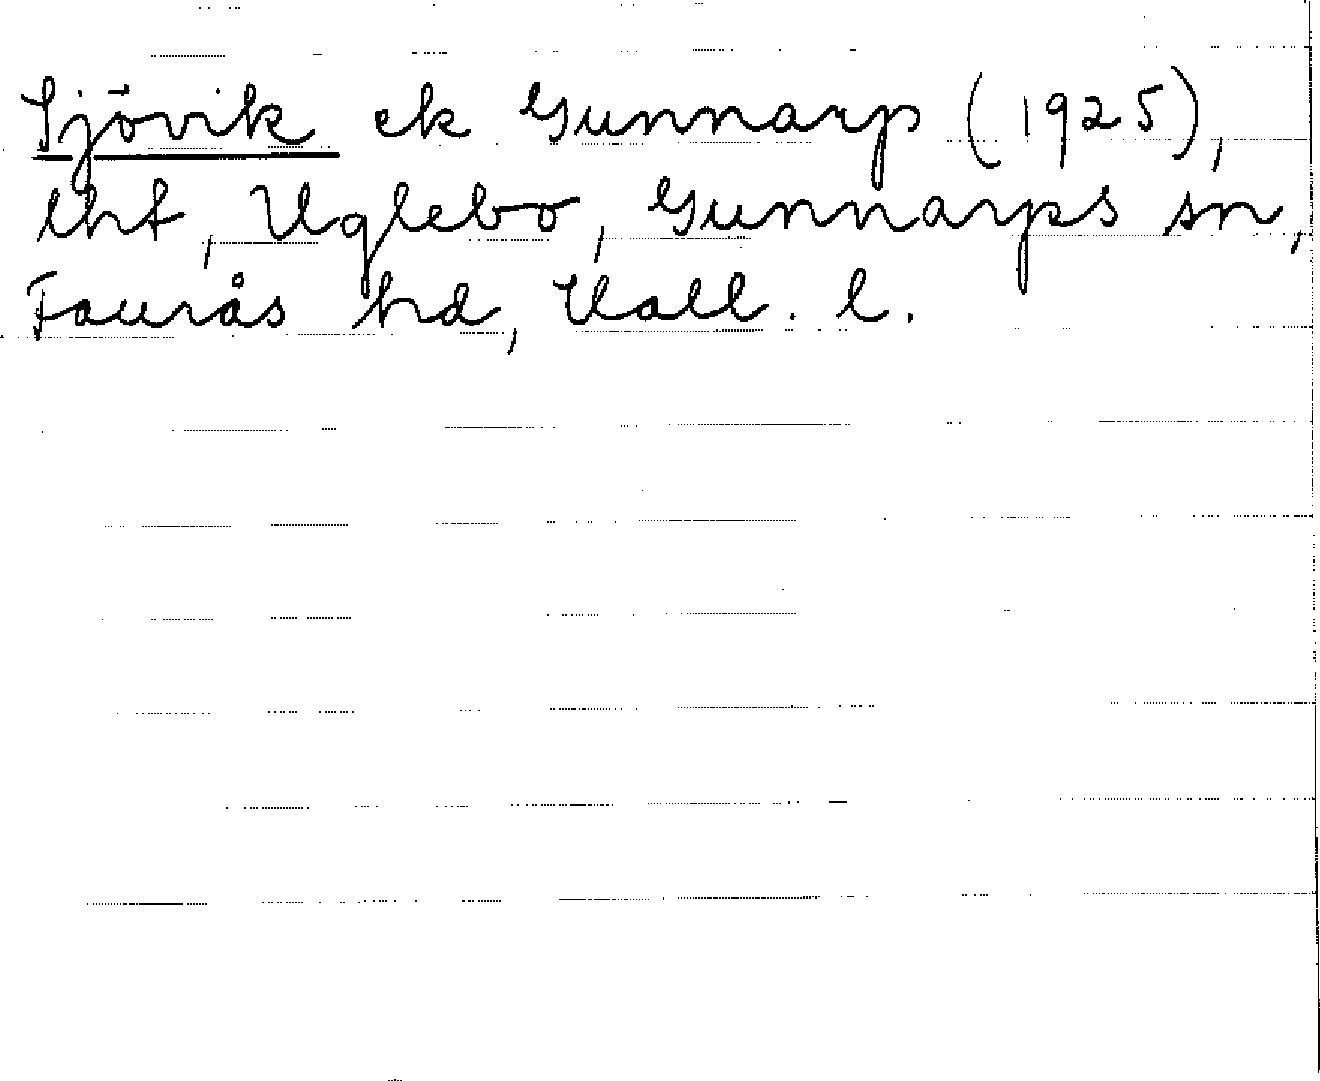 Sjövik ek Gunnarp (1925),
lht, Uglebo, Gunnarps sn,
Faurås hd, Hall. l.